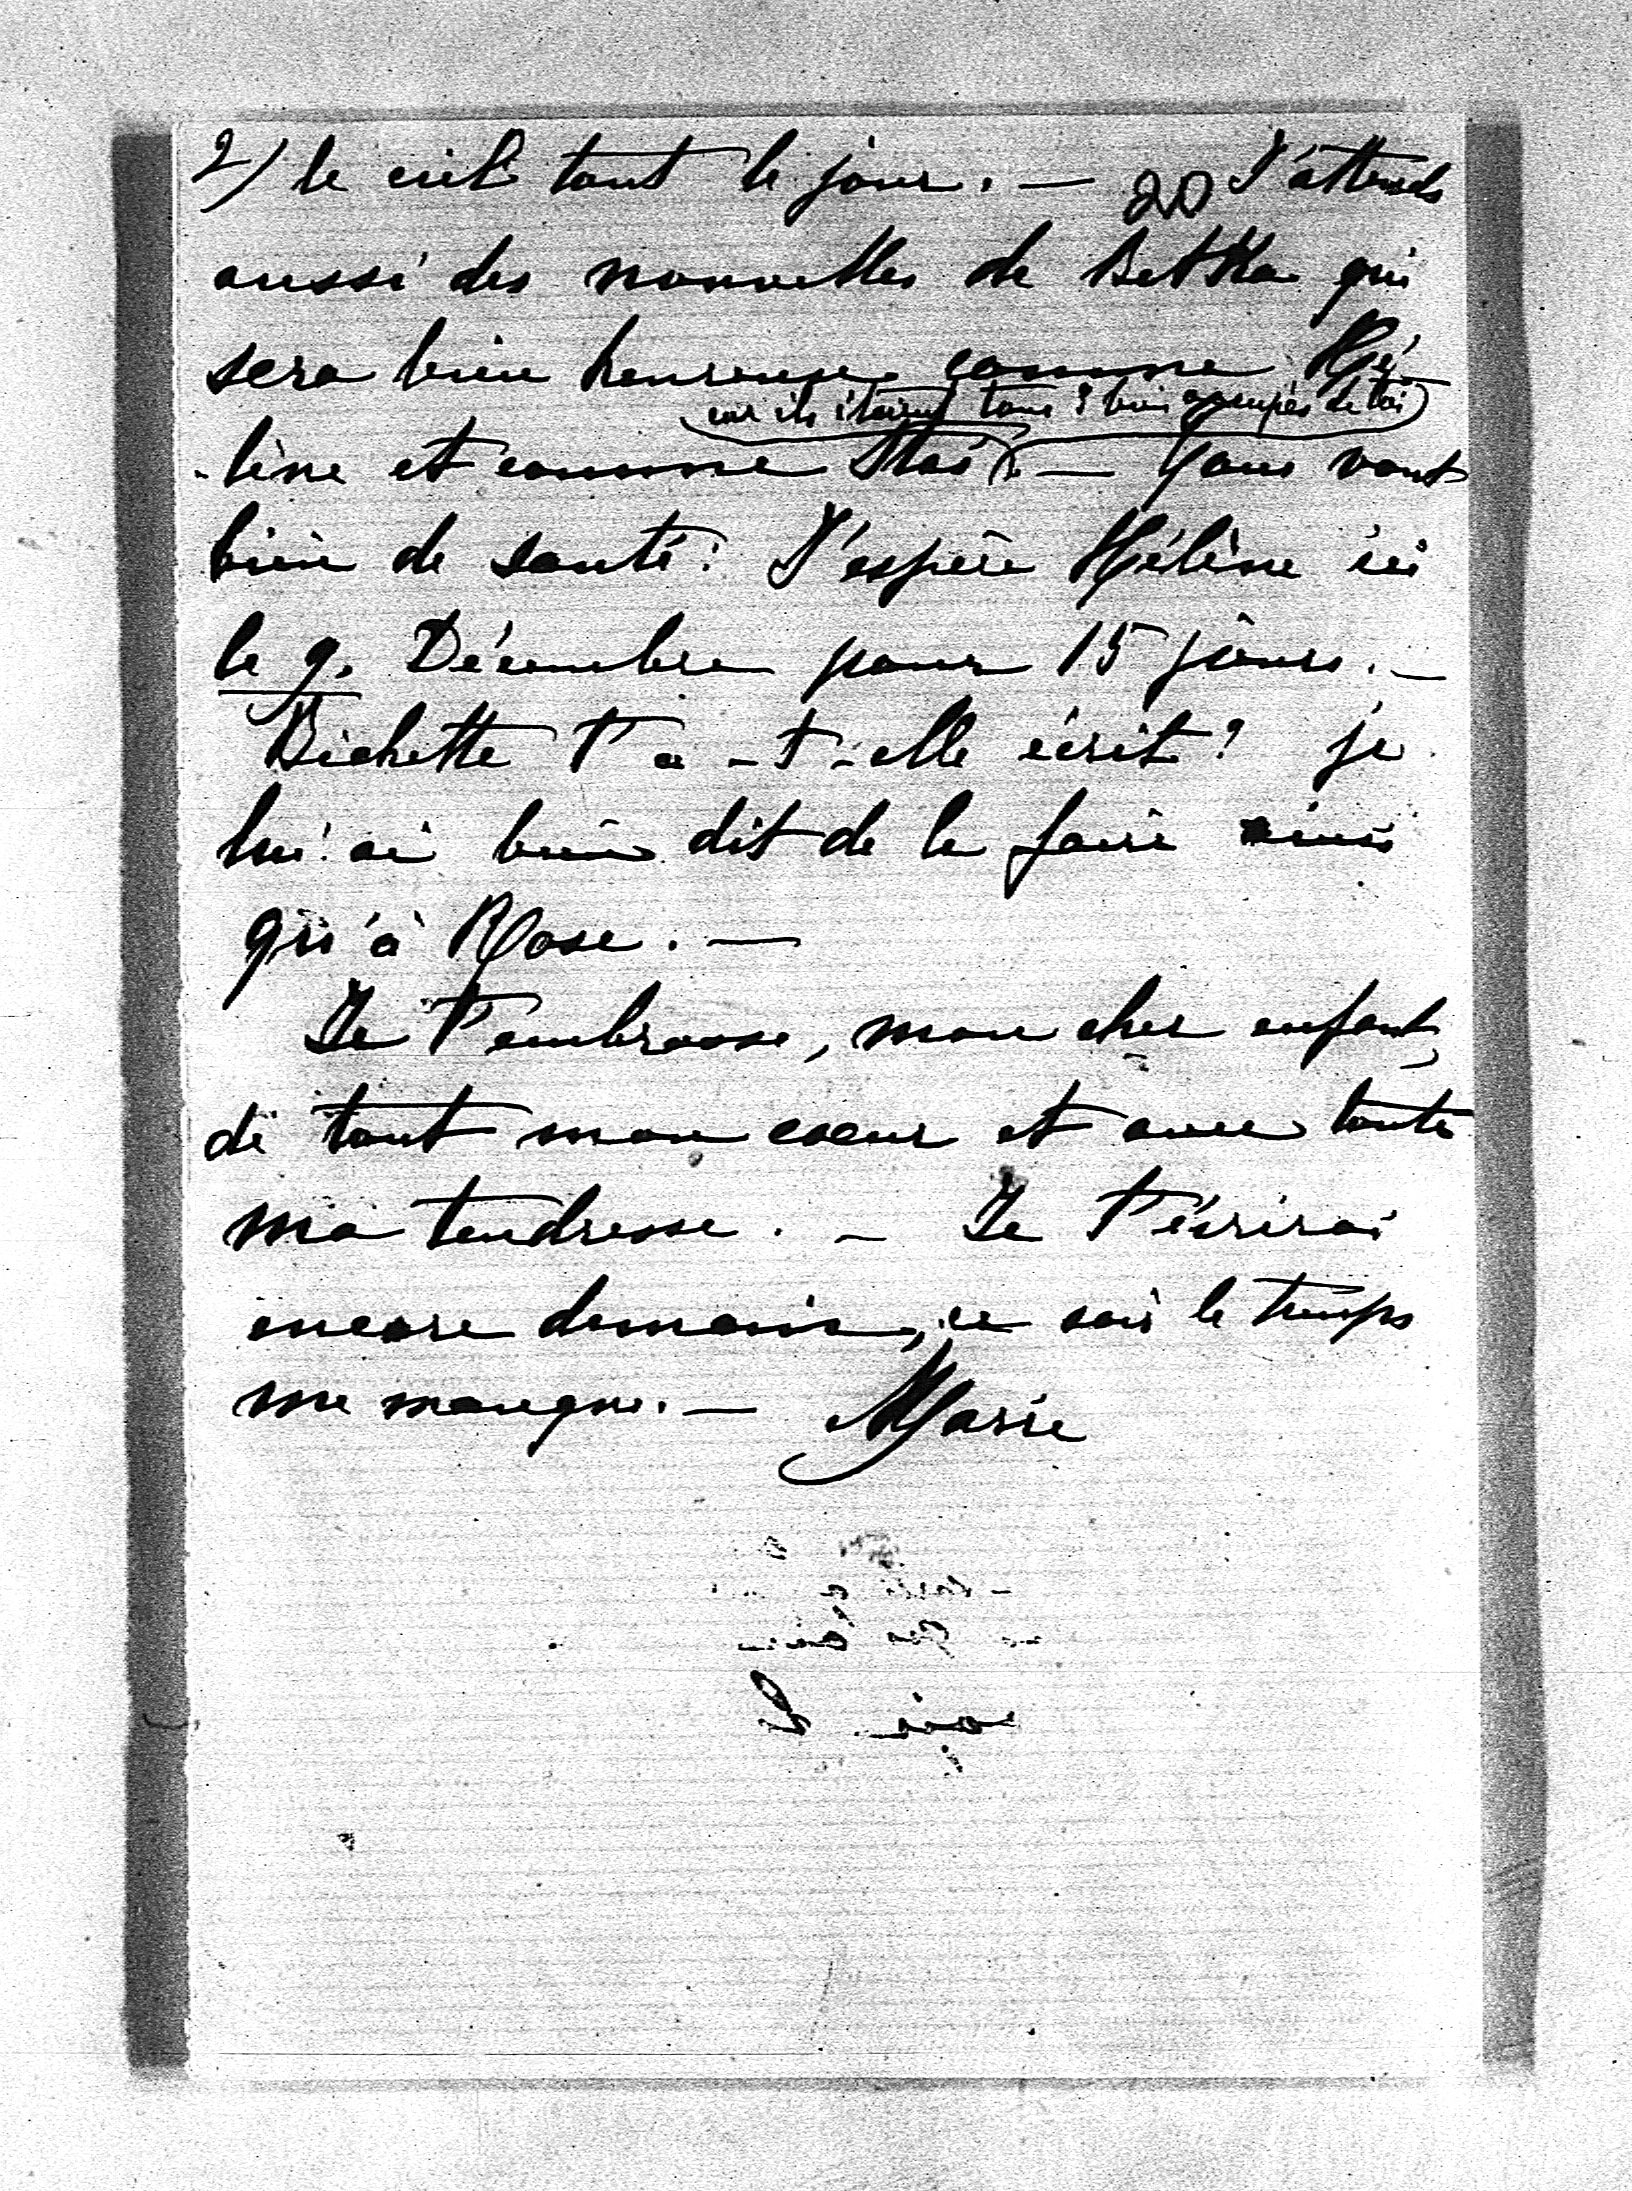 2) le ciel tout le jour. — 20 J'attends
aussi des nouvelles de Betka qui
sera bien heureuse comme Hé-
(car ils étaient tous 3 bien occupés de toi)
-lène et comme Stas. — Tous vont
bien de santé. J'espère Hélène ici
le 9. Décembre pour 15 jours. —
Bichette t'a-t-elle écrit? je
lui ai bien dit de le faire ainsi
qu'à Rose. —
Je t'embrasse, mon cher enfant,
de tout mon coeur et avec toute
ma tendresse. — Je t'écrirai
encore demain, ce soir le temps
me manque. — Marie